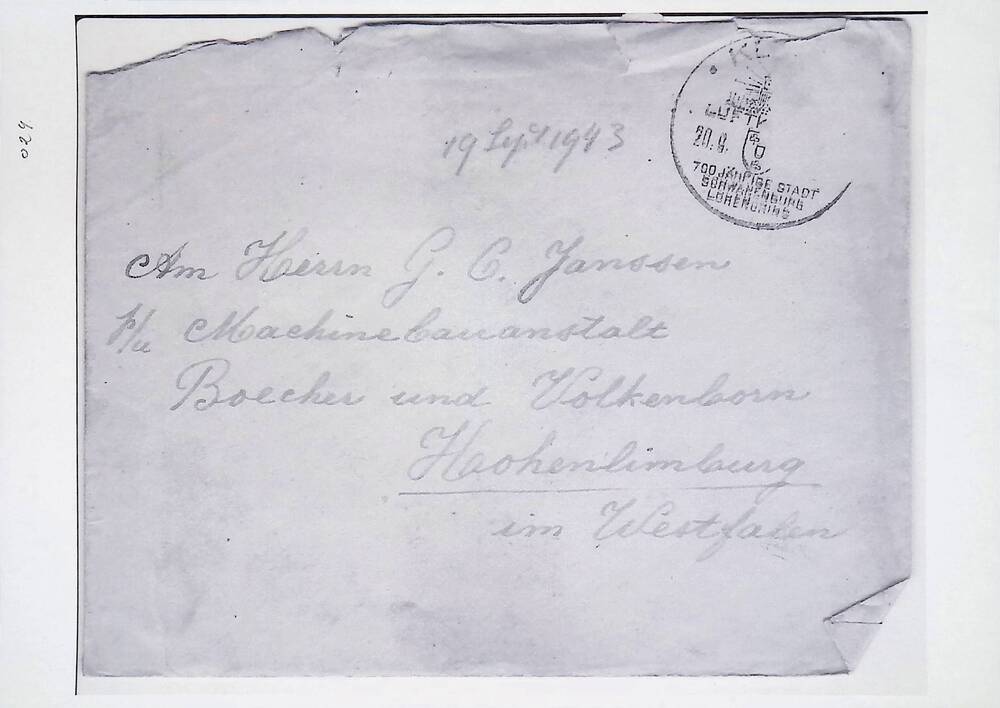 029
19 Sept 1943
LUFTK
20.9.
700 JÄHRIGE STADT
SCHWANENBURG
LOHENGRINS
Am Herrn G. C. Janssen
p/u Machinebauanstalt
Boecher und Volkenborn
Haohenlimburg
im Westfalen